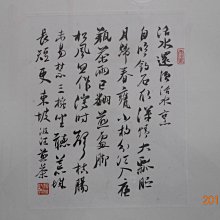 活水還須活水烹
自臨釣石取深情大瓢貯
月歸春甕小杓分江入夜
瓶茶雨已翻煎處腳
松風忽作瀉時聲枯腸
未易禁三椀坐聽荒城
長短更 東坡汲江煎茶
201